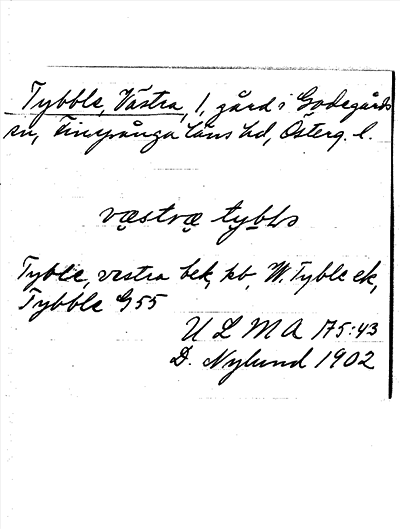 Tybble, Västra, 1, gård i Godegårds
sn, Finspånga läns hd, Österg. l.
væstræ tybḷə
Tyble, vestra bek, kb, W. Tyble ek,
Tybble G 55
U L M A 175:43
D. Nylund 1902